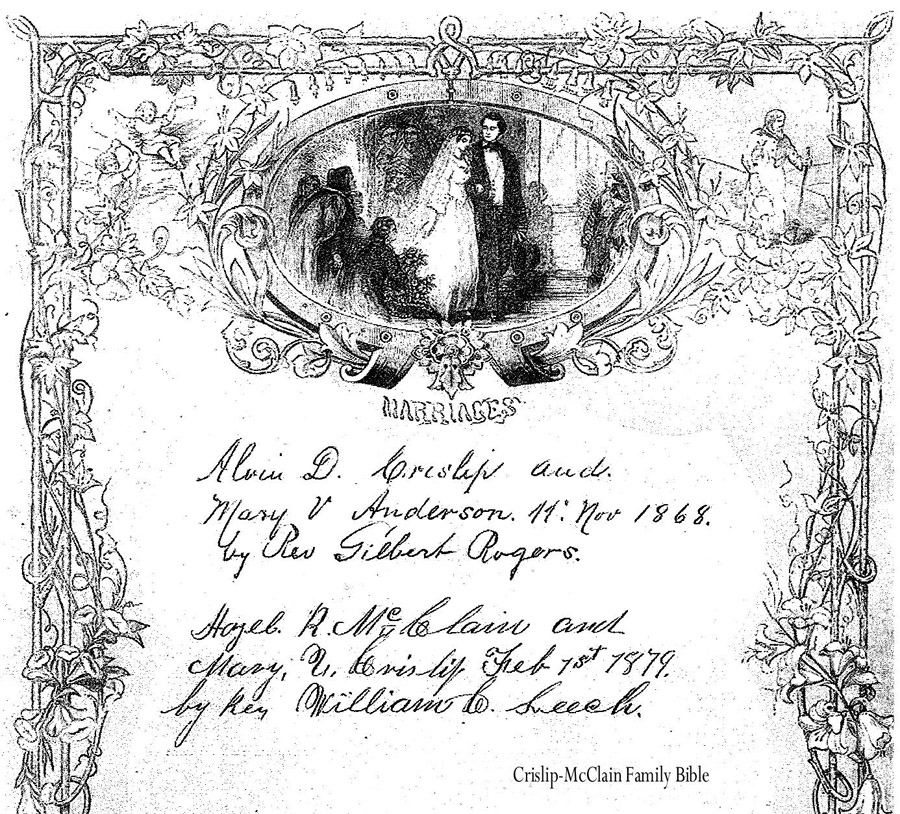 MARRIAGES
Alvin D. Crislip and.
Mary V Anderson. 11: Nov 1868.
by Rev Gilbert Rogers.
R. McClain and
Mary, V. Crislip Feb 1st 1879.
by Rev William C. Leech.
Crislip-McClain Family Bible